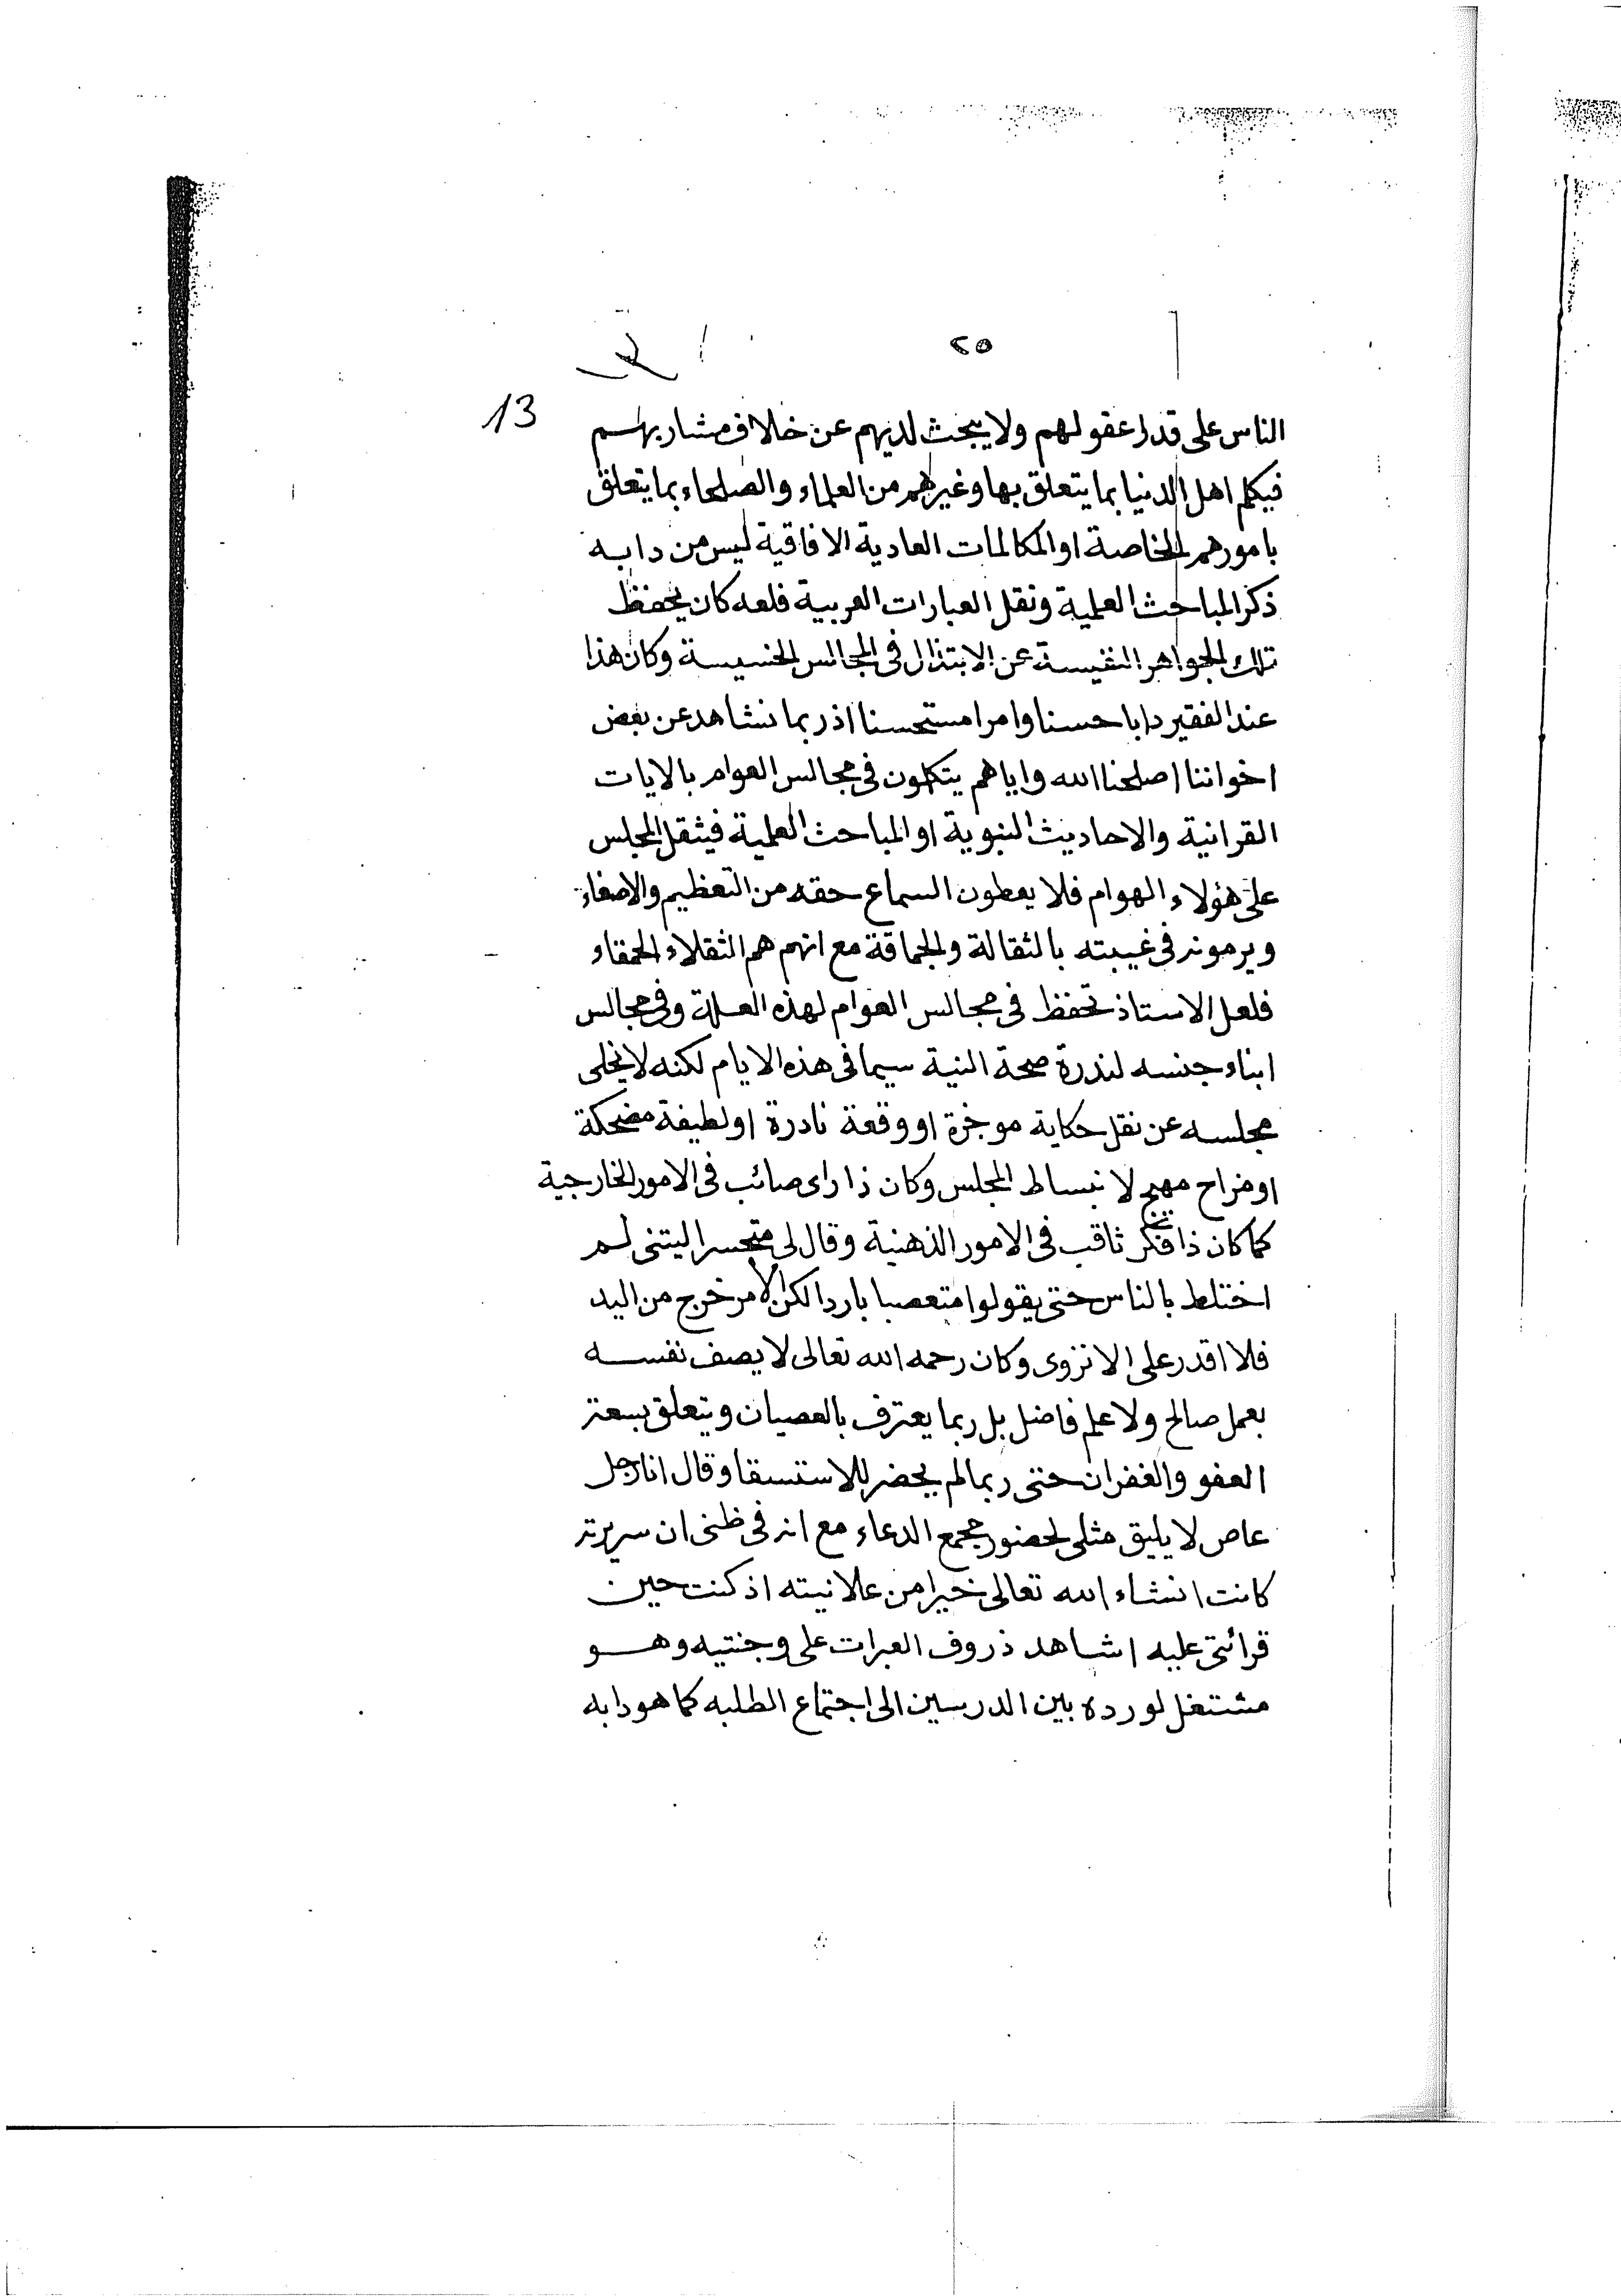 ٢٥
13
الناس على قدر عقولهم ولا يبحث لديهم عن خلاف مشاربهم
فيكلم اهل الدنيا بما يتعلق بها وغيرهم من العلماء والصلحاء بما يتعلق
بامورهم الخاصة او المكالمات العادية الافاقية ليس من دابه
ذكر المباحث العلمية ونقل العبارات العربية فلعه كان يحفظ
تلك الجواهر النفيسة عن الابتذال فى المجالس الخسيسة وكان هذا
عند الفقير دابا حسنا وامرا مستحسنا اذ ربما نشاهد عن بعض
اخواننا اصلحنا الله واياهم يتكلمون فى مجالس العوام بالايات
القرانية والاحاديث النبوية او المباحث العلمية فيثقل المجلس
على هؤلاء الهوام فلا يعطون السماع حقه من التعظيم والاصغاء
ويرمونه فى غيبته بالثقالة والحماقة مع انهم هم الثقلاء الحمقاء
فلعل الاستاذ تحفظ فى مجالس العوام لهذه العلة وفى مجالس
ابناء جنسه لندرة صحة النية سيما فى هذه الايام لكنه لا يخلى
مجلسه عن نقل حكاية موخزة او وقعة نادرة او لطيفة مضحكة
او مزاح مهيج لانبساط المجلس وكان ذا راى صائب فى الامور الخارجية
كما كان ذا فكر ثاقب فى الامور الذهنية وقال لى متحسرا ليتنى لم
اختلط بالناس حتى يقولوا متعصبا باردا لكن الامر خرج من اليد
فلا اقدر على الانزوى وكان رحمه الله تعالى لا يصف نفسه
بعمل صالح ولا علم فاضل بل ربما يعترف بالعصيان ويتعلق بسعة
العفو والغفران حتى ربما لم يحضر للاستسقا وقال انا رجل
عاص لا يليق مثلى لحضور مجمع الدعاء مع انه فى ظنى ان سريرته
كانت انشاء الله تعالى خيرا من علانيته اذ كنت حين
قرائتى عليه اشاهد ذروف العبرات على وجنتيه وهو
مشتغل لورده بين الدرسين الى اجتماع الطلبه كما هو دابه